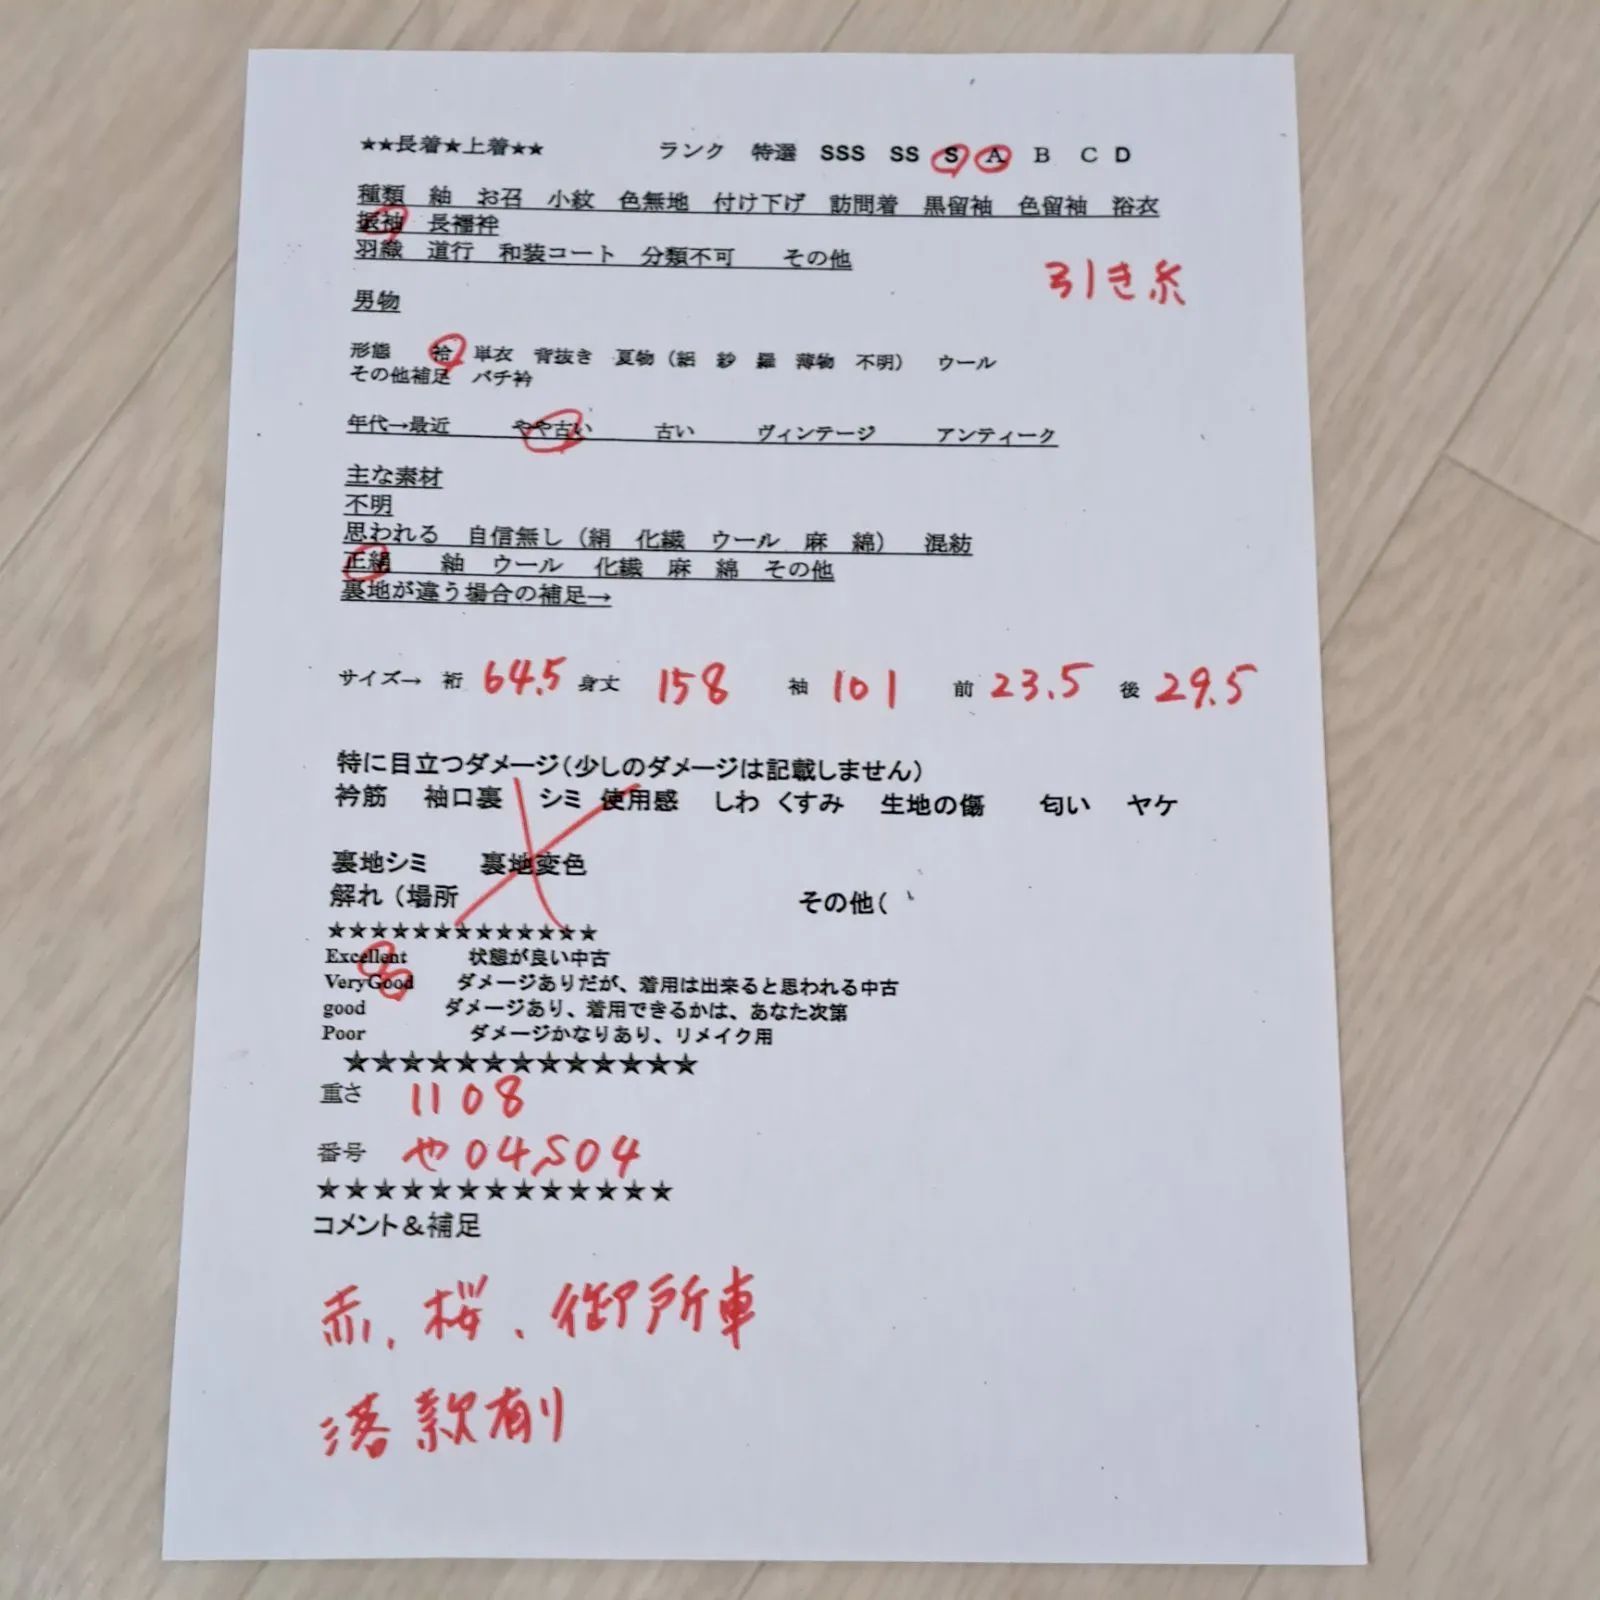 ★★長着★上着★★ ランク 特選 SSS SS S A B C D
種類 紬 お召 小紋 色無地 付け下げ 訪問着 黒留袖 色留袖 浴衣
振袖 長襦袢
羽織 道行 和装コート 分類不可 その他
引き糸
男物
形態 袷 単衣 背抜き 夏物（絽 紗 羅 薄物 不明） ウール
その他補足 バチ衿
年代→最近 やや古い 古い ヴィンテージ アンティーク
主な素材
不明
思われる 自信無し（絹 化繊 ウール 麻 綿） 混紡
正絹 紬 ウール 化繊 麻 綿 その他
裏地が違う場合の補足→
サイズ→ 裄 64.5 身丈 158 袖 101 前 23.5 後 29.5
特に目立つダメージ（少しのダメージは記載しません）
衿筋 袖口裏 シミ 使用感 しわ くすみ 生地の傷 匂い ヤケ
裏地シミ 裏地変色
解れ（場所 その他（
★★★★★★★★★★★★★
Excellent 状態が良い中古
VeryGood ダメージありだが、着用は出来ると思われる中古
good ダメージあり、着用できるかは、あなた次第
Poor ダメージかなりあり、リメイク用
★★★★★★★★★★★★★
重さ 1108
番号 や04504
★★★★★★★★★★★★★
コメント＆補足
赤、桜、御所車
落款有り